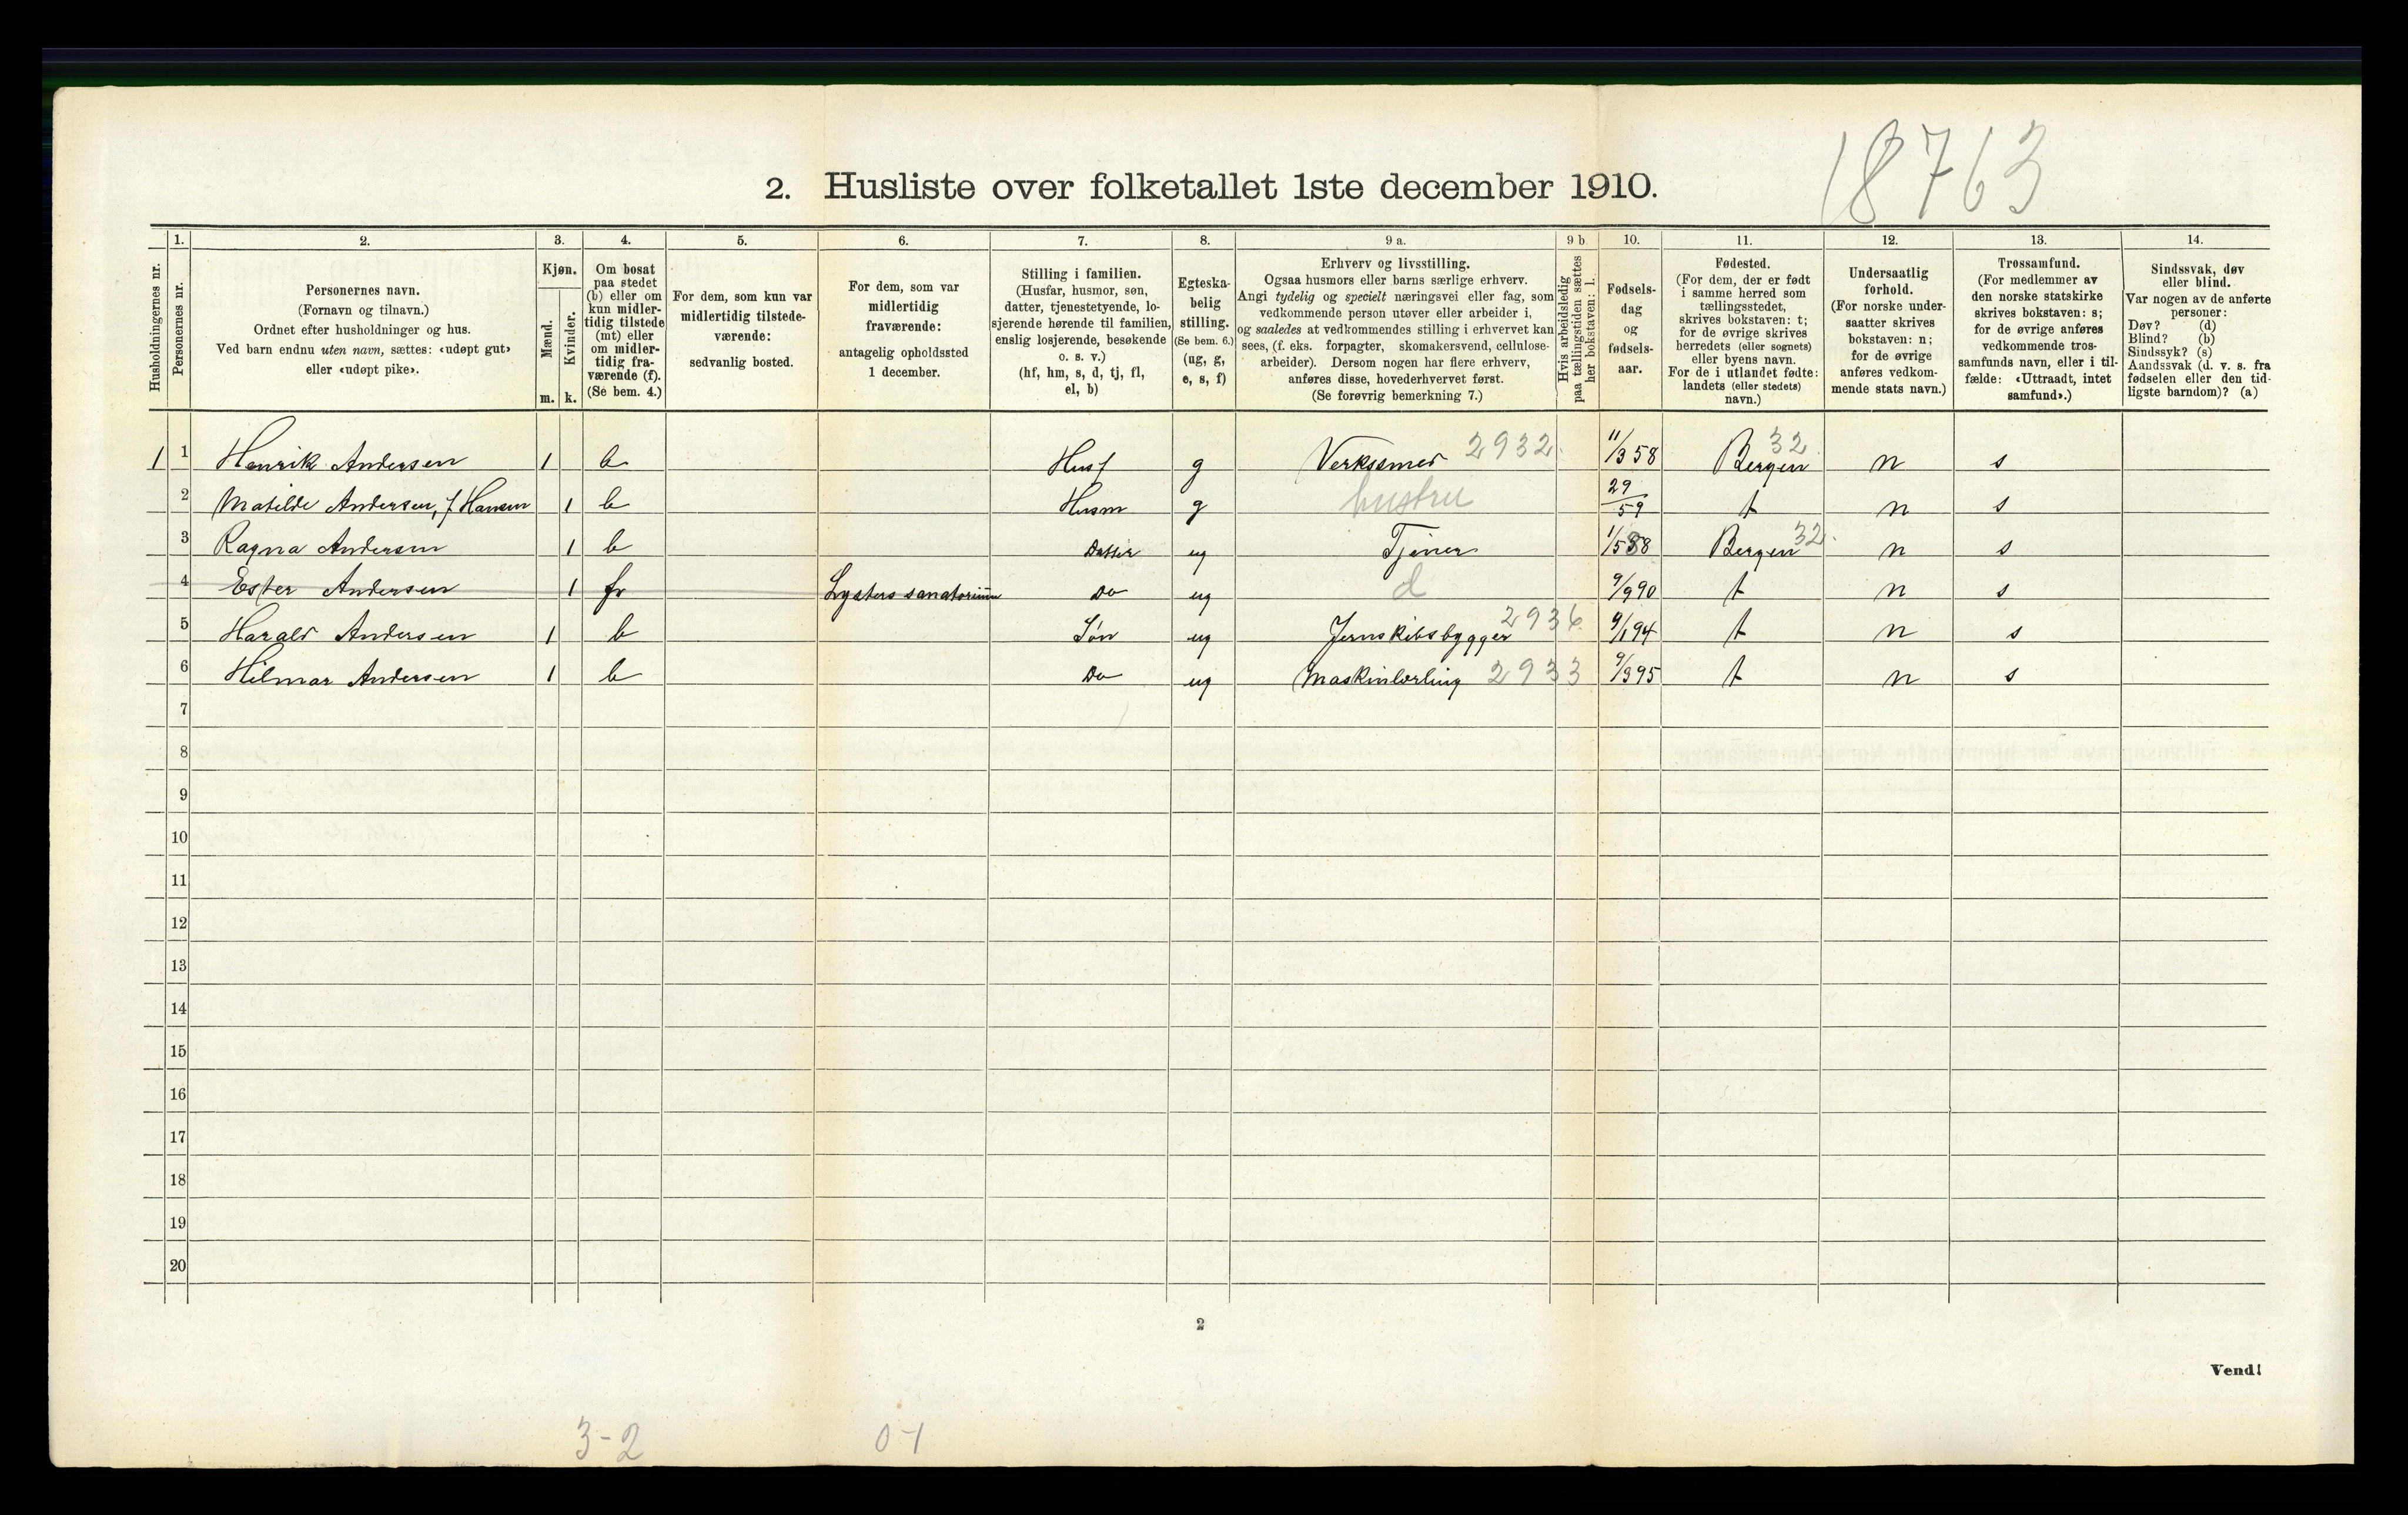 18763
2. Husliste over folketallet 1ste december 1910.
Husholdningernes nr. | 1. Personernes nr. | 2. Personernes navn. (Fornavn og tilnavn.) Ordnet efter husholdninger og hus. Ved barn endnu uten navn, sættes: «udøpt gut» eller «udøpt pike». | 3. Kjøn. Mænd. m. Kvinder. k. | 4. Om bosat paa stedet (b) eller om kun midlertidig tilstede (mt) eller om midlertidig fraværende (f). (Se bem. 4.) | 5. For dem, som kun var midlertidig tilstedeværende: sedvanlig bosted. | 6. For dem, som var midlertidig fraværende: antagelig opholdssted 1 december. | 7. Stilling i familien. (Husfar, husmor, søn, datter, tjenestetyende, losjerende hørende til familien, enslig losjerende, besøkende o. s. v.) (hf, hm, s, d, tj, fl, el, b) | 8. Egteskabelig stilling. (Se bem. 6.) (ug, g, e, s, f) | 9 a. Erhverv og livsstilling. Ogsaa husmors eller barns særlige erhverv. Angi tydelig og specielt næringsvei eller fag, som vedkommende person utøver eller arbeider i, og saaledes at vedkommendes stilling i erhvervet kan sees, (f. eks. forpagter, skomakersvend, cellulosearbeider). Dersom nogen har flere erhverv, anføres disse, hovederhvervet først. (Se forøvrig bemerkning 7.) | 9 b Hvis arbeidsledig paa tællingstiden sættes her bokstaven: l. | 10. Fødselsdag og fødselsaar. | 11. Fødested. (For dem, der er født i samme herred som tællingsstedet, skrives bokstaven: t; for de øvrige skrives herredets (eller sognets) eller byens navn. For de i utlandet fødte: landets (eller stedets) navn.) | 12. Undersaatlig forhold. (For norske undersaatter skrives bokstaven: n; for de øvrige anføres vedkommende stats navn.) | 13. Trossamfund. (For medlemmer av den norske statskirke skrives bokstaven: s; for de øvrige anføres vedkommende trossamfunds navn, eller i tilfælde: «Uttraadt, intet samfund».) | 14. Sindssvak, døv eller blind. Var nogen av de anførte personer: Døv? (d) Blind? (b) Sindssyk? (s) Aandssvak (d. v. s. fra fødselen eller den tidligste barndom)? (a)
1 1 Henrik Andersen 1 b Husf g Verkssmed 2932 11/3 58 Bergen 32 n s
2 Matilde Andersen, f Hansen 1 b Husm g hustru 29/59 t n s
3 Ragna Andersen 1 b Datter ug Tjener 1/5 88 Bergen 32 n s
4 Ester Andersen 1 fr Lysters sanatorium Do ug d 9/9 90 t n s
5 Harald Andersen 1 b Søn ug Jernskibsbygger 2936 9/1 94 t n s
6 Hilmar Andersen 1 b Do ug Maskinlærling 2933 9/3 95 t n s
7
8
9
10
11
12
13
14
15
16
17
18
19
20
2
Vend!
3-2 0-1